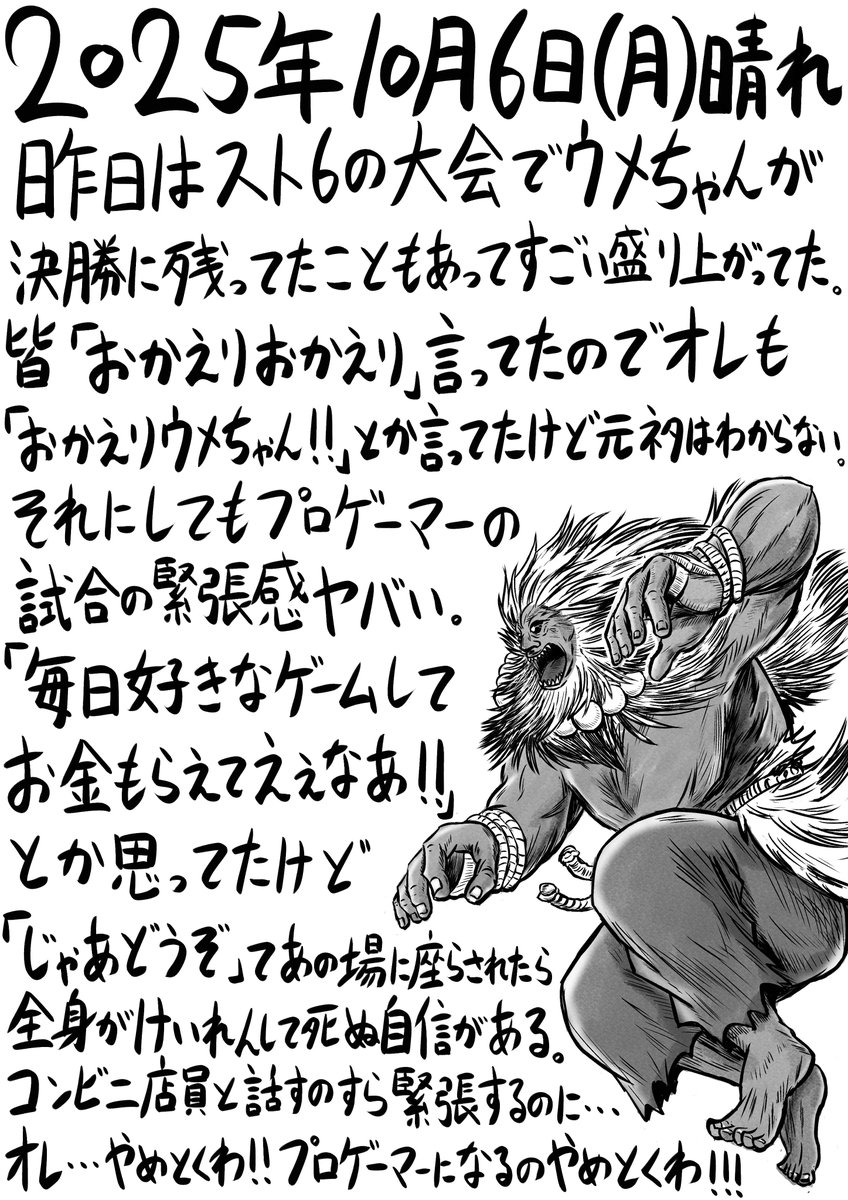 2025年10月6日(月)晴れ
昨日はスト6の大会でウメちゃんが
決勝に残ってたこともあってすごい盛り上がってた。
皆「おかえりおかえり」言ってたのでオレも
「おかえりウメちゃん!!」とか言ってたけど元ネタはわからない。
それにしてもプロゲーマーの
試合の緊張感ヤバい。
「毎日好きなゲームして
お金もらえてええなあ!!」
とか思ってたけど
「じゃあどうぞ」てあの場に座らされたら
全身がけいれんして死ぬ自信がある。
コンビニ店員と話すのすら緊張するのに…
オレ…やめとくわ!!プロゲーマーになるのやめとくわ!!!